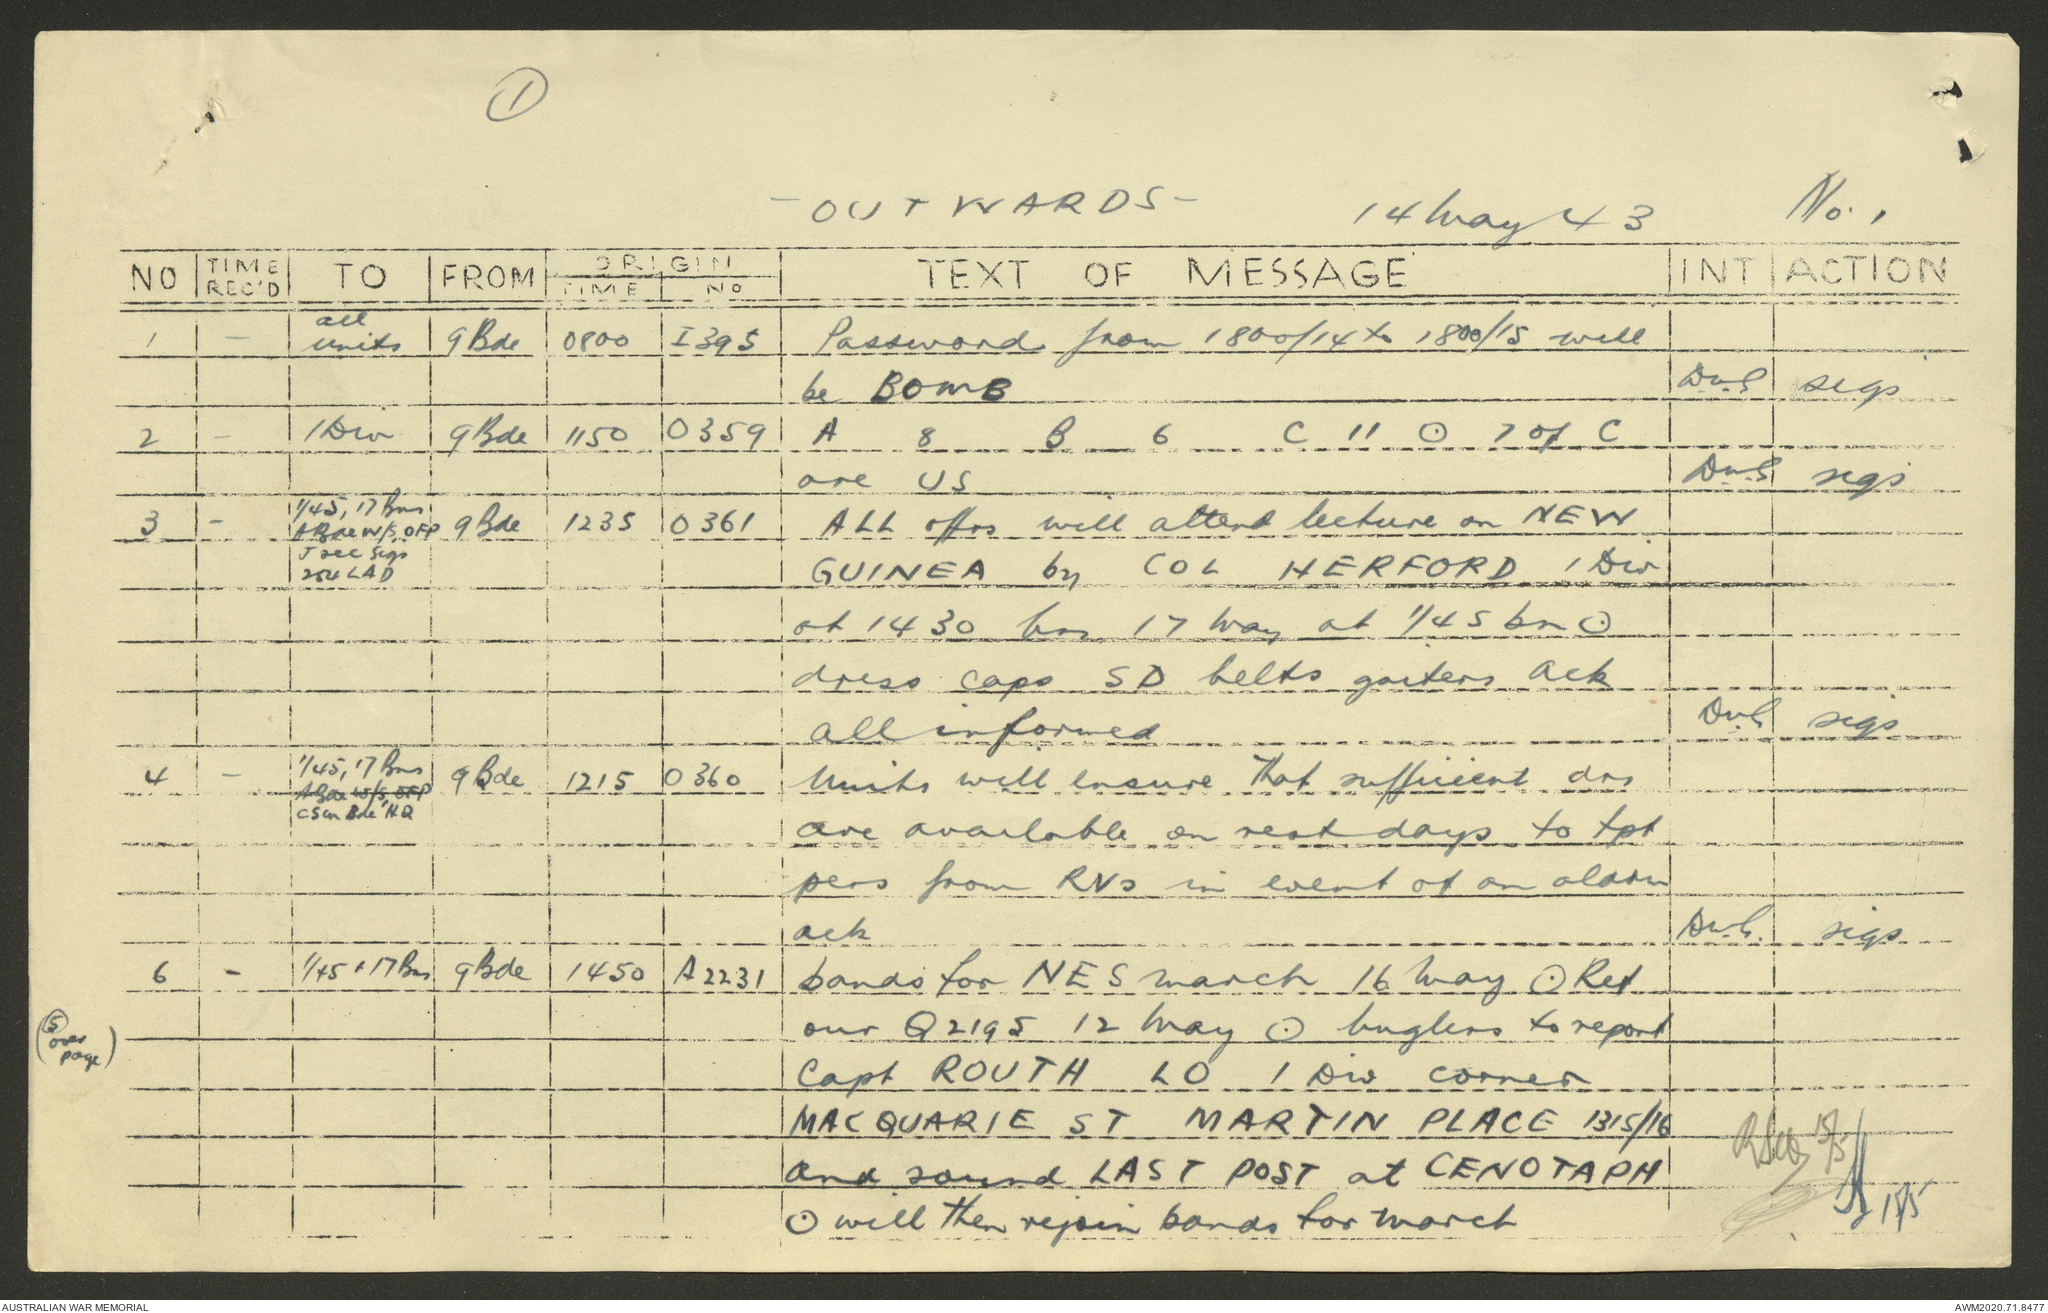 1
- OUTWARDS -
14 May 43
No. 1
NO TIME REC'D TO FROM ORIGIN TIME NO TEXT OF MESSAGE INT ACTION
1 - all units 9 Bde 0800 I395 Password from 1800/14 to 1800/15 will
be BOMB sigs
2 - 1 Div 9 Bde 1150 O359 A 8 B 6 C 11 ⊙ 7 of C
are US sigs
3 - 1/45, 17 Bns 9 Bde 1235 O361 ALL offrs will attend lecture on NEW
A Bde W/S, OFP
J sec Sigs
254 LAD
GUINEA by COL HERFORD 1 Div
at 1430 hrs 17 May at 1/45 bn ⊙
dress caps SD belts gaiters ack
all informed sigs
4 - 1/45, 17 Bns 9 Bde 1215 O360 Units will ensure that sufficient drs
A Bde W/S, OFP
C Sen Bde HQ
are available on rest days to tpt
pers from RVs in event of an alarm
ack sigs
6 - 1/45 + 17 Bns 9 Bde 1450 A2231 bands for NES march 16 May ⊙ Ref
(5 over page)
our Q2195 12 May ⊙ buglers to report
Capt ROUTH LO 1 Div corner
MACQUARIE ST MARTIN PLACE 1315/16
and sound LAST POST at CENOTAPH
⊙ will then rejoin bands for march
15/5
15/5
AUSTRALIAN WAR MEMORIAL
AWM2020.71.8477